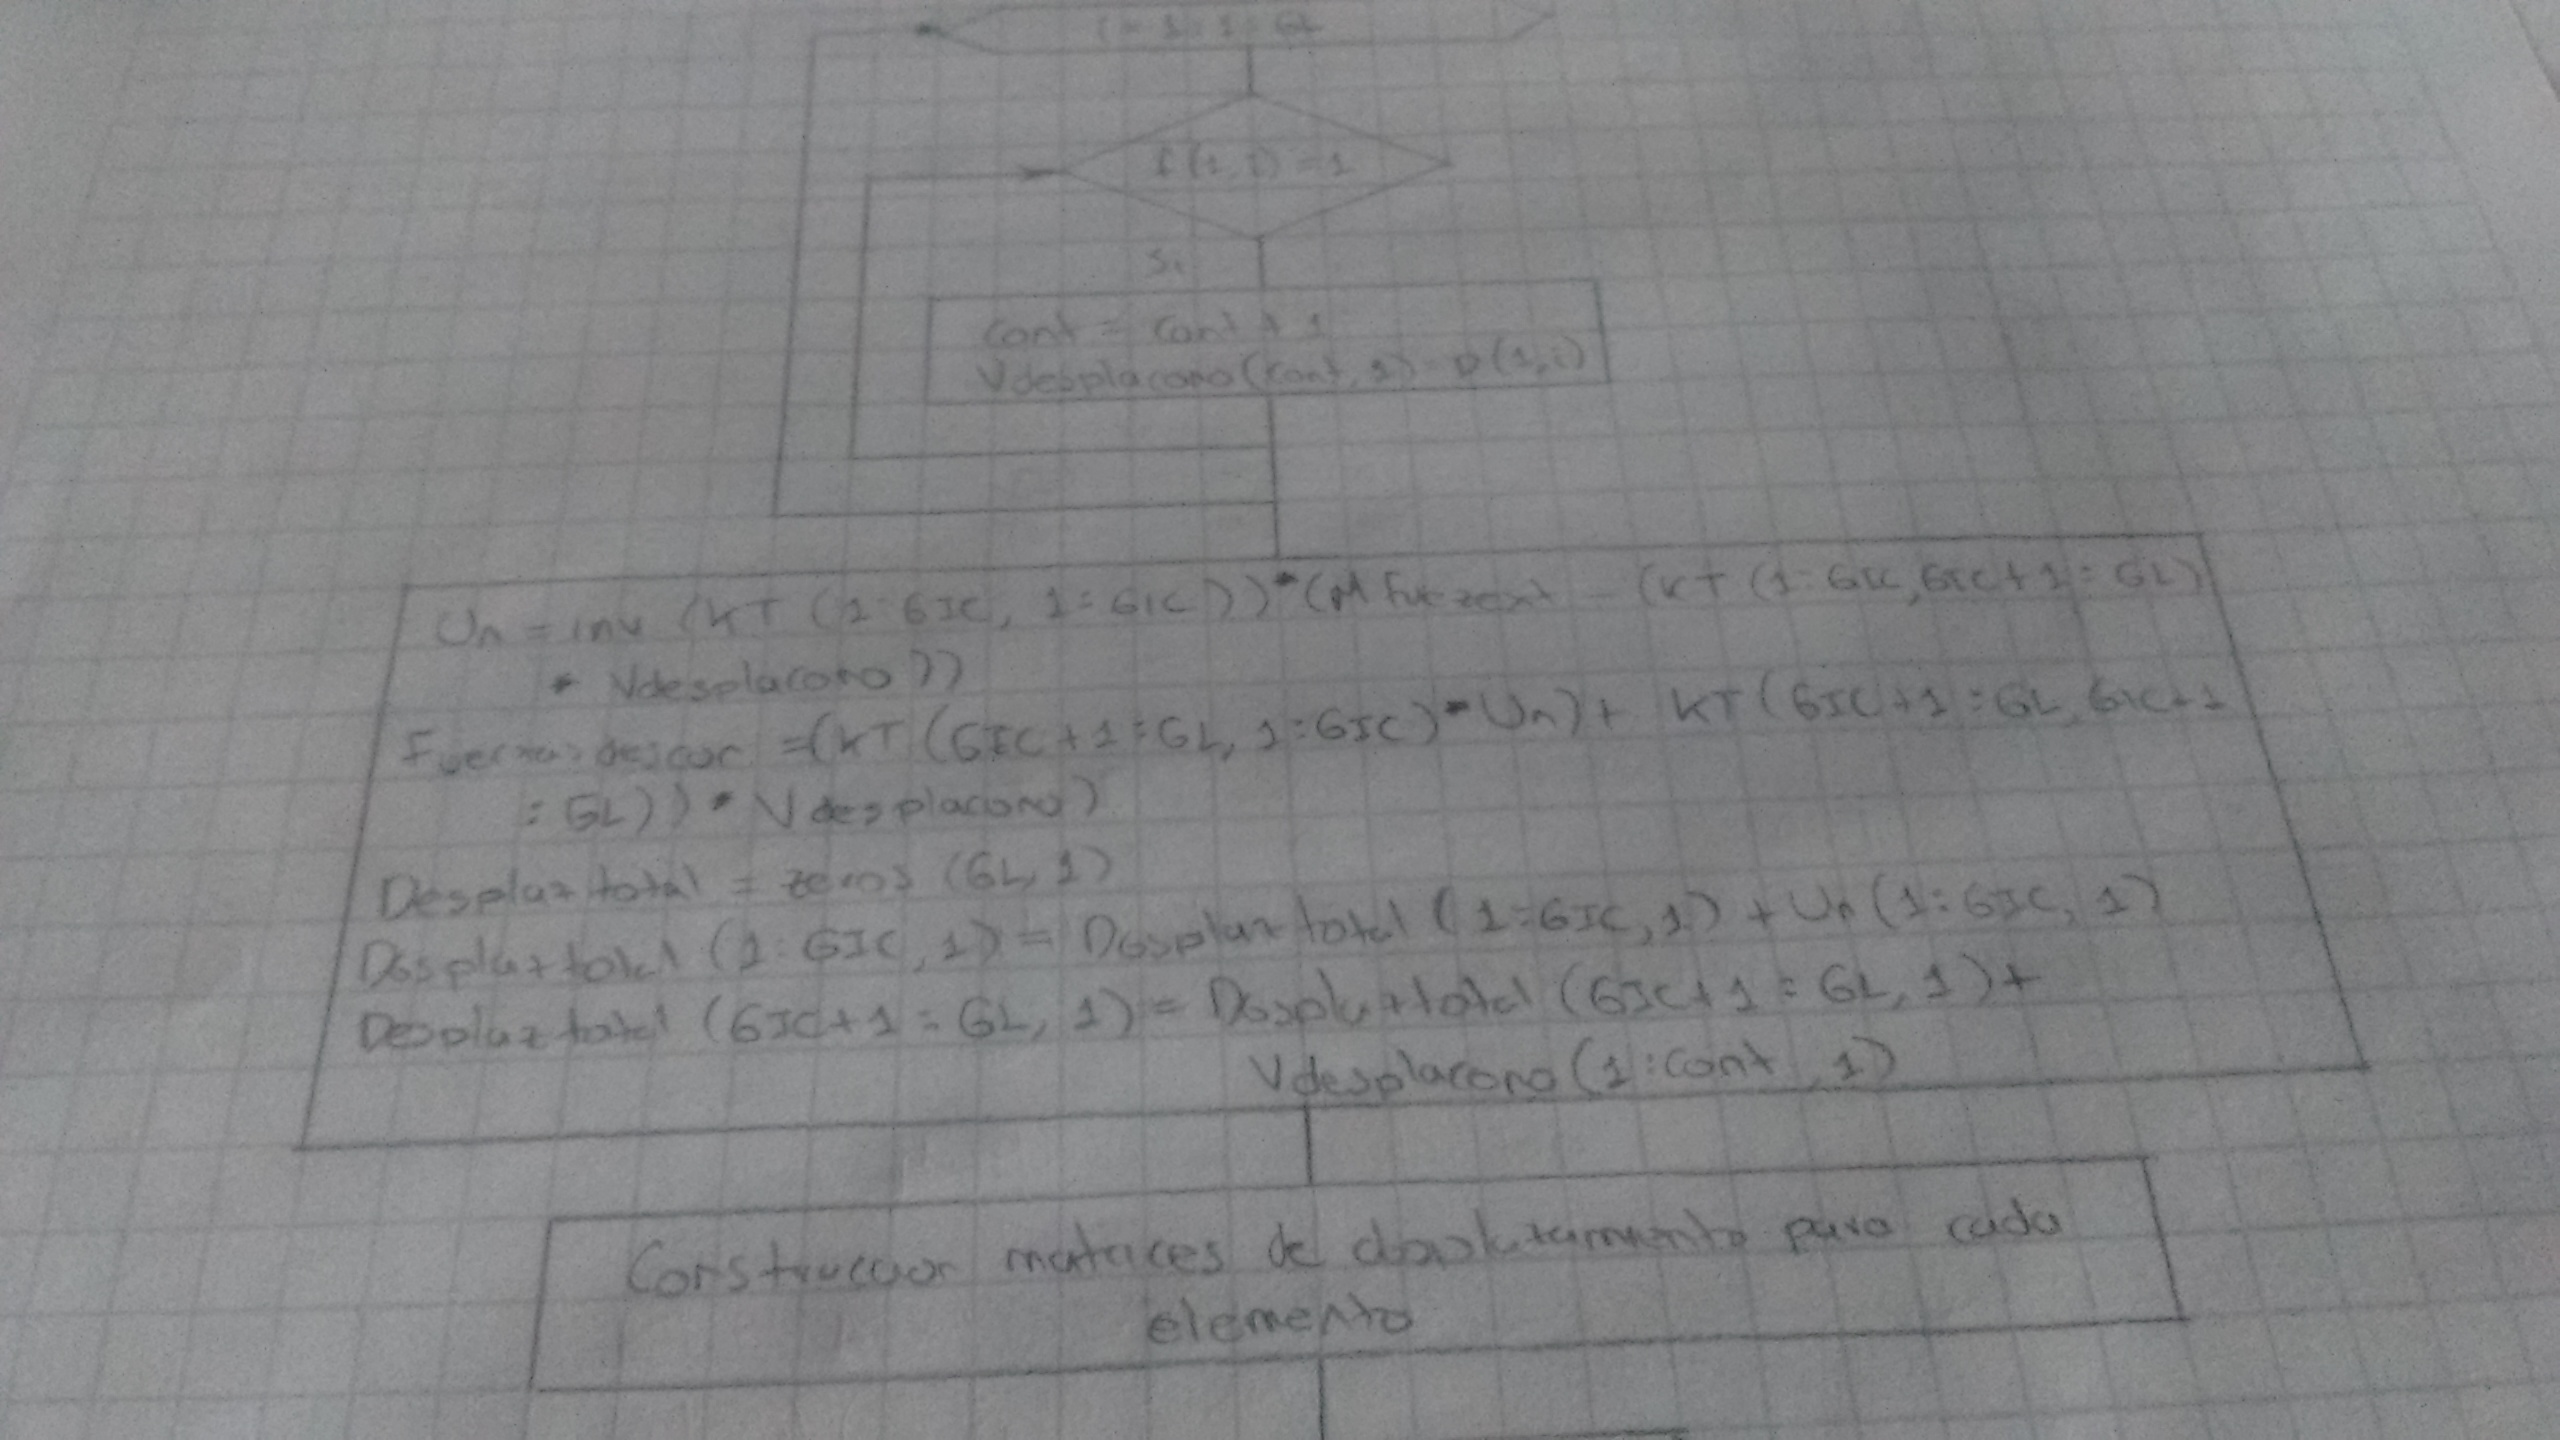 i = 1 : 1 : GL
I(1,i) = 1
Si
cont = cont + 1
Vdesplacono(cont,1) = D(1,i)
Un = inv (KT (1:GIC, 1:GIC))*(MFuezext - (KT (1:GIC,GIC+1:GL)
* Vdesplacono))
=(KT (GIC+1:GL, 1:GIC)*Un)+ KT(GIC+1:GL,GIC+1
:GL))*Vdesplacono)
Desplaztotal = zeros (GL,1)
Desplaztotal (1:GIC,1) = Desplaztotal (1:GIC,1) + Un(1:GIC,1)
Desplaztotal (GIC+1:GL,1) = Desplaztotal (GIC+1:GL,1)+
Vdesplacono(1:cont,1)
Construccion matrices de desplazamiento para cada
elemento